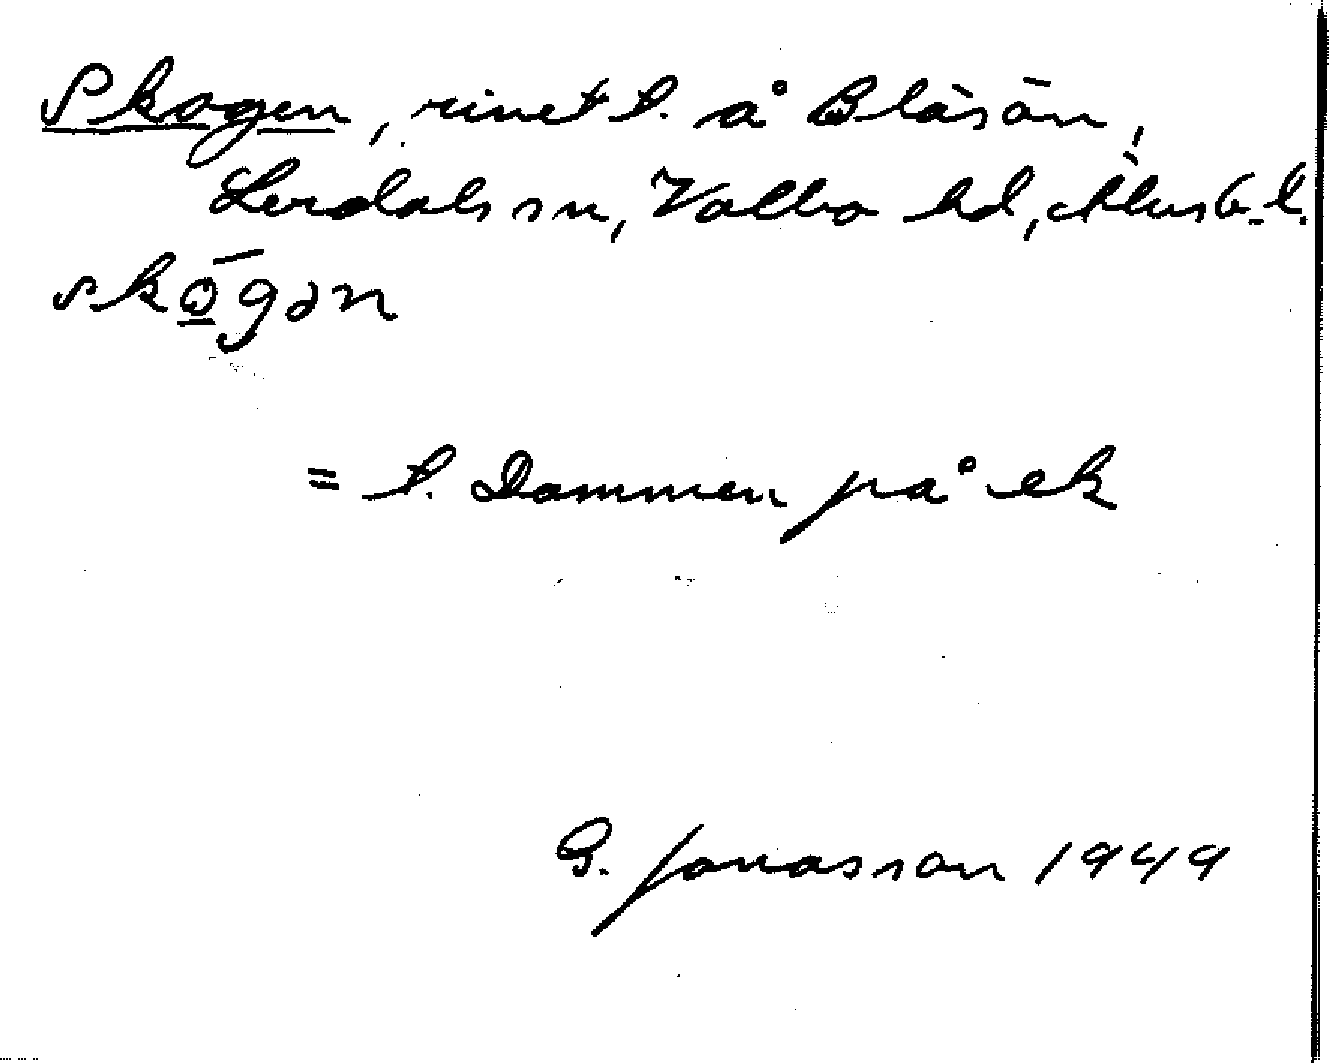 Skogen, rivet t. å Blåsān,
Lerdals sn, Valbo hd, Älvsb. l.
skō̲gən
= t. Dammen på ek
G. Jonasson 1949